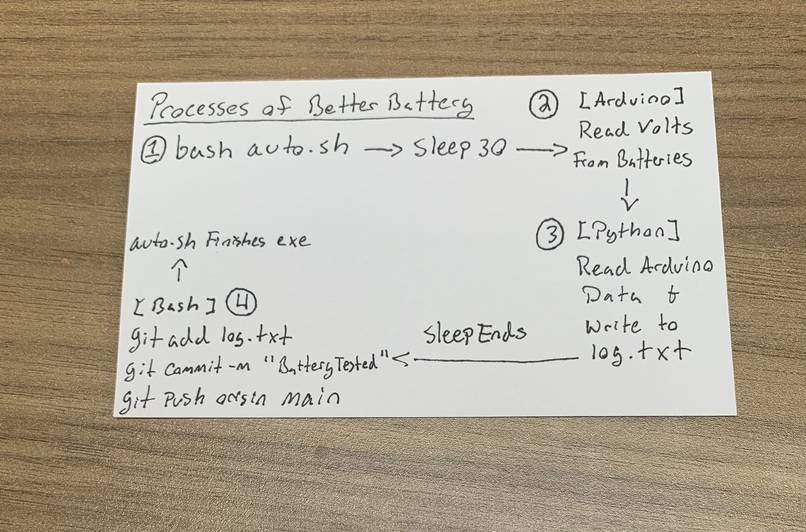 Processes of Better Battery
① bash auto.sh → Sleep 30 →
② [Arduino]
Read Volts
From Batteries
↓
③ [Python]
Read Arduino
Data &
Write to
log.txt
Sleep Ends
←
[Bash] ④
git add log.txt
git Commit -m "Battery Tested"
git Push origin main
↑
auto.sh Finishes exe